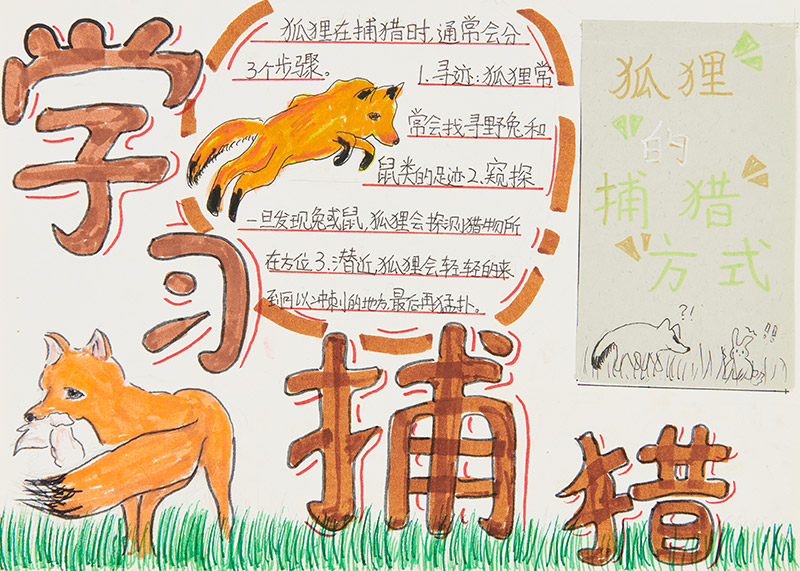 学习捕猎
狐狸在捕猎时,通常会分
3个步骤。
1.寻迹:狐狸常
常会找寻野兔和
鼠类的足迹2.窥探
一旦发现兔或鼠,狐狸会探测猎物所
在方位3.潜近,狐狸会轻轻的来
到可以冲刺的地方,最后再猛扑。
狐狸
的
捕猎
方式
?!
!!